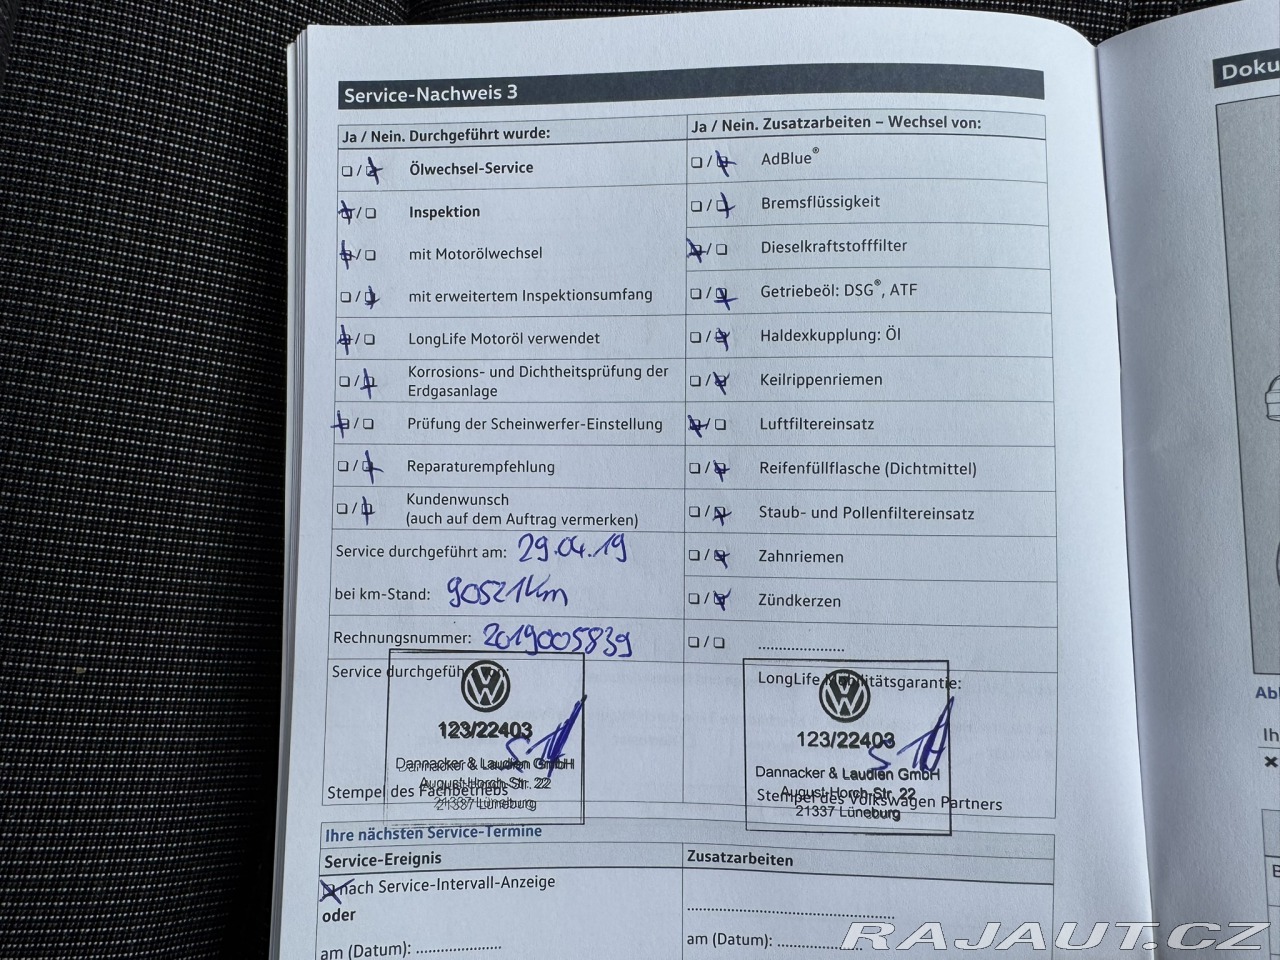 Service-Nachweis 3
Ja / Nein. Durchgeführt wurde:
Ölwechsel-Service
Inspektion
mit Motorölwechsel
mit erweitertem Inspektionsumfang
LongLife Motoröl verwendet
Korrosions- und Dichtheitsprüfung der
Erdgasanlage
Prüfung der Scheinwerfer-Einstellung
Reparaturempfehlung
Kundenwunsch
(auch auf dem Auftrag vermerken)
Service durchgeführt am: 29.04.19
bei km-Stand: 90521Km
Rechnungsnummer: 2019005839
Service durchgeführt
123/22403
Dannacker & Laudien GmbH
August-Horch-Str. 22
Stempel des Fachbetriebs
21337 Lüneburg
Ja / Nein. Zusatzarbeiten – Wechsel von:
AdBlue®
Bremsflüssigkeit
Dieselkraftstofffilter
Getriebeöl: DSG®, ATF
Haldexkupplung: Öl
Keilrippenriemen
Luftfiltereinsatz
Reifenfüllflasche (Dichtmittel)
Staub- und Pollenfiltereinsatz
Zahnriemen
Zündkerzen
LongLife Mobilitätsgarantie:
123/22403
Dannacker & Laudien GmbH
August-Horch-Str. 22
Stempel des Volkswagen Partners
21337 Lüneburg
Ihre nächsten Service-Termine
Service-Ereignis
nach Service-Intervall-Anzeige
oder
am (Datum): ................
Zusatzarbeiten
am (Datum): ................
Doku
Ab
Ih
RAJAUT.CZ